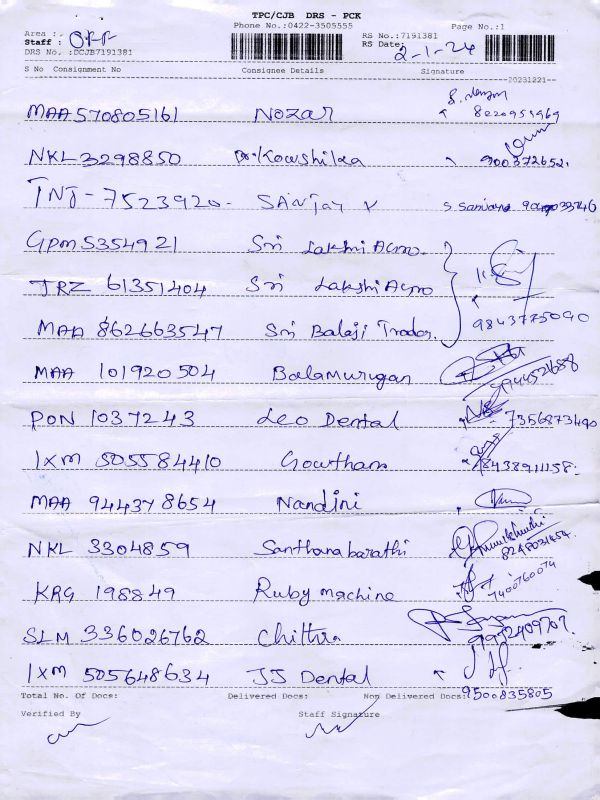 TPC/CJB DRS - PCK
Phone No.:0422-3505555 Page No.:1
Area :- RS No.:7191381
Staff : OFF RS Date: 2-1-24
DRS No. :DCJB7191381
S No Consignment No Consignee Details Signature
20231221--
MAA 570805161 Nozar 8220951969
NKL 3298850 Dr. Kowshilka 9003726521
TNJ - 7523920 - SANJAY V S Sanjay
GPM 5354921 Sri Lakshi Agro.
TRZ 61351404 Sri Lakshi Agro
MAA 862663547 Sri Balaji Trador. 9843775090
MAA 101920504 Balamurugan
PON 1037243 Leo Dental 7356873490
IXM 505584410 Gowtham 9843891158
MAA 944378654 Nandini
NKL 3304859 Santhanabarathi
KRG 198849 Ruby machine 7400760074
SLM 336026762 Chithra
IXM 505648634 JJ Dental 9500835805
Total No. Of Docs: Delivered Docs: Non Delivered Docs:
Verified By Staff Signature